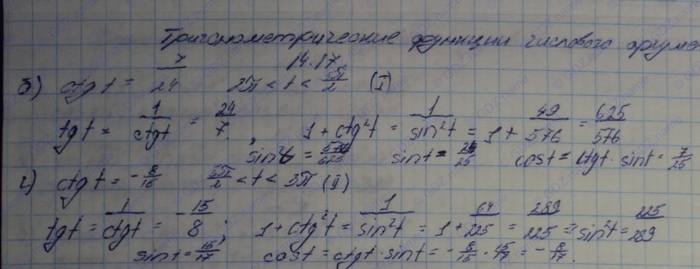 Тригонометрические функции числового аргуме
14.17
б) ctg t = 7/24 2π < t < 5π/2 (I)
tg t = 1/ctg t = 24/7, 1 + ctg²t = 1/sin²t = 1 + 49/576 = 625/576
sin²t = 576/625 sin t = 24/25 cos t = ctg t · sin t = 7/25
г) ctg t = -8/15 5π/2 < t < 3π (II)
tg t = 1/ctg t = -15/8; 1 + ctg²t = 1/sin²t = 1 + 64/225 = 289/225 ⇒ sin²t = 225/289
sin t = 15/17; cos t = ctg t · sin t = -8/15 · 15/17 = -8/17.